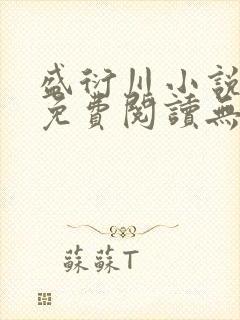 盛衍川小說
免費閱讀無
蘇蘇T